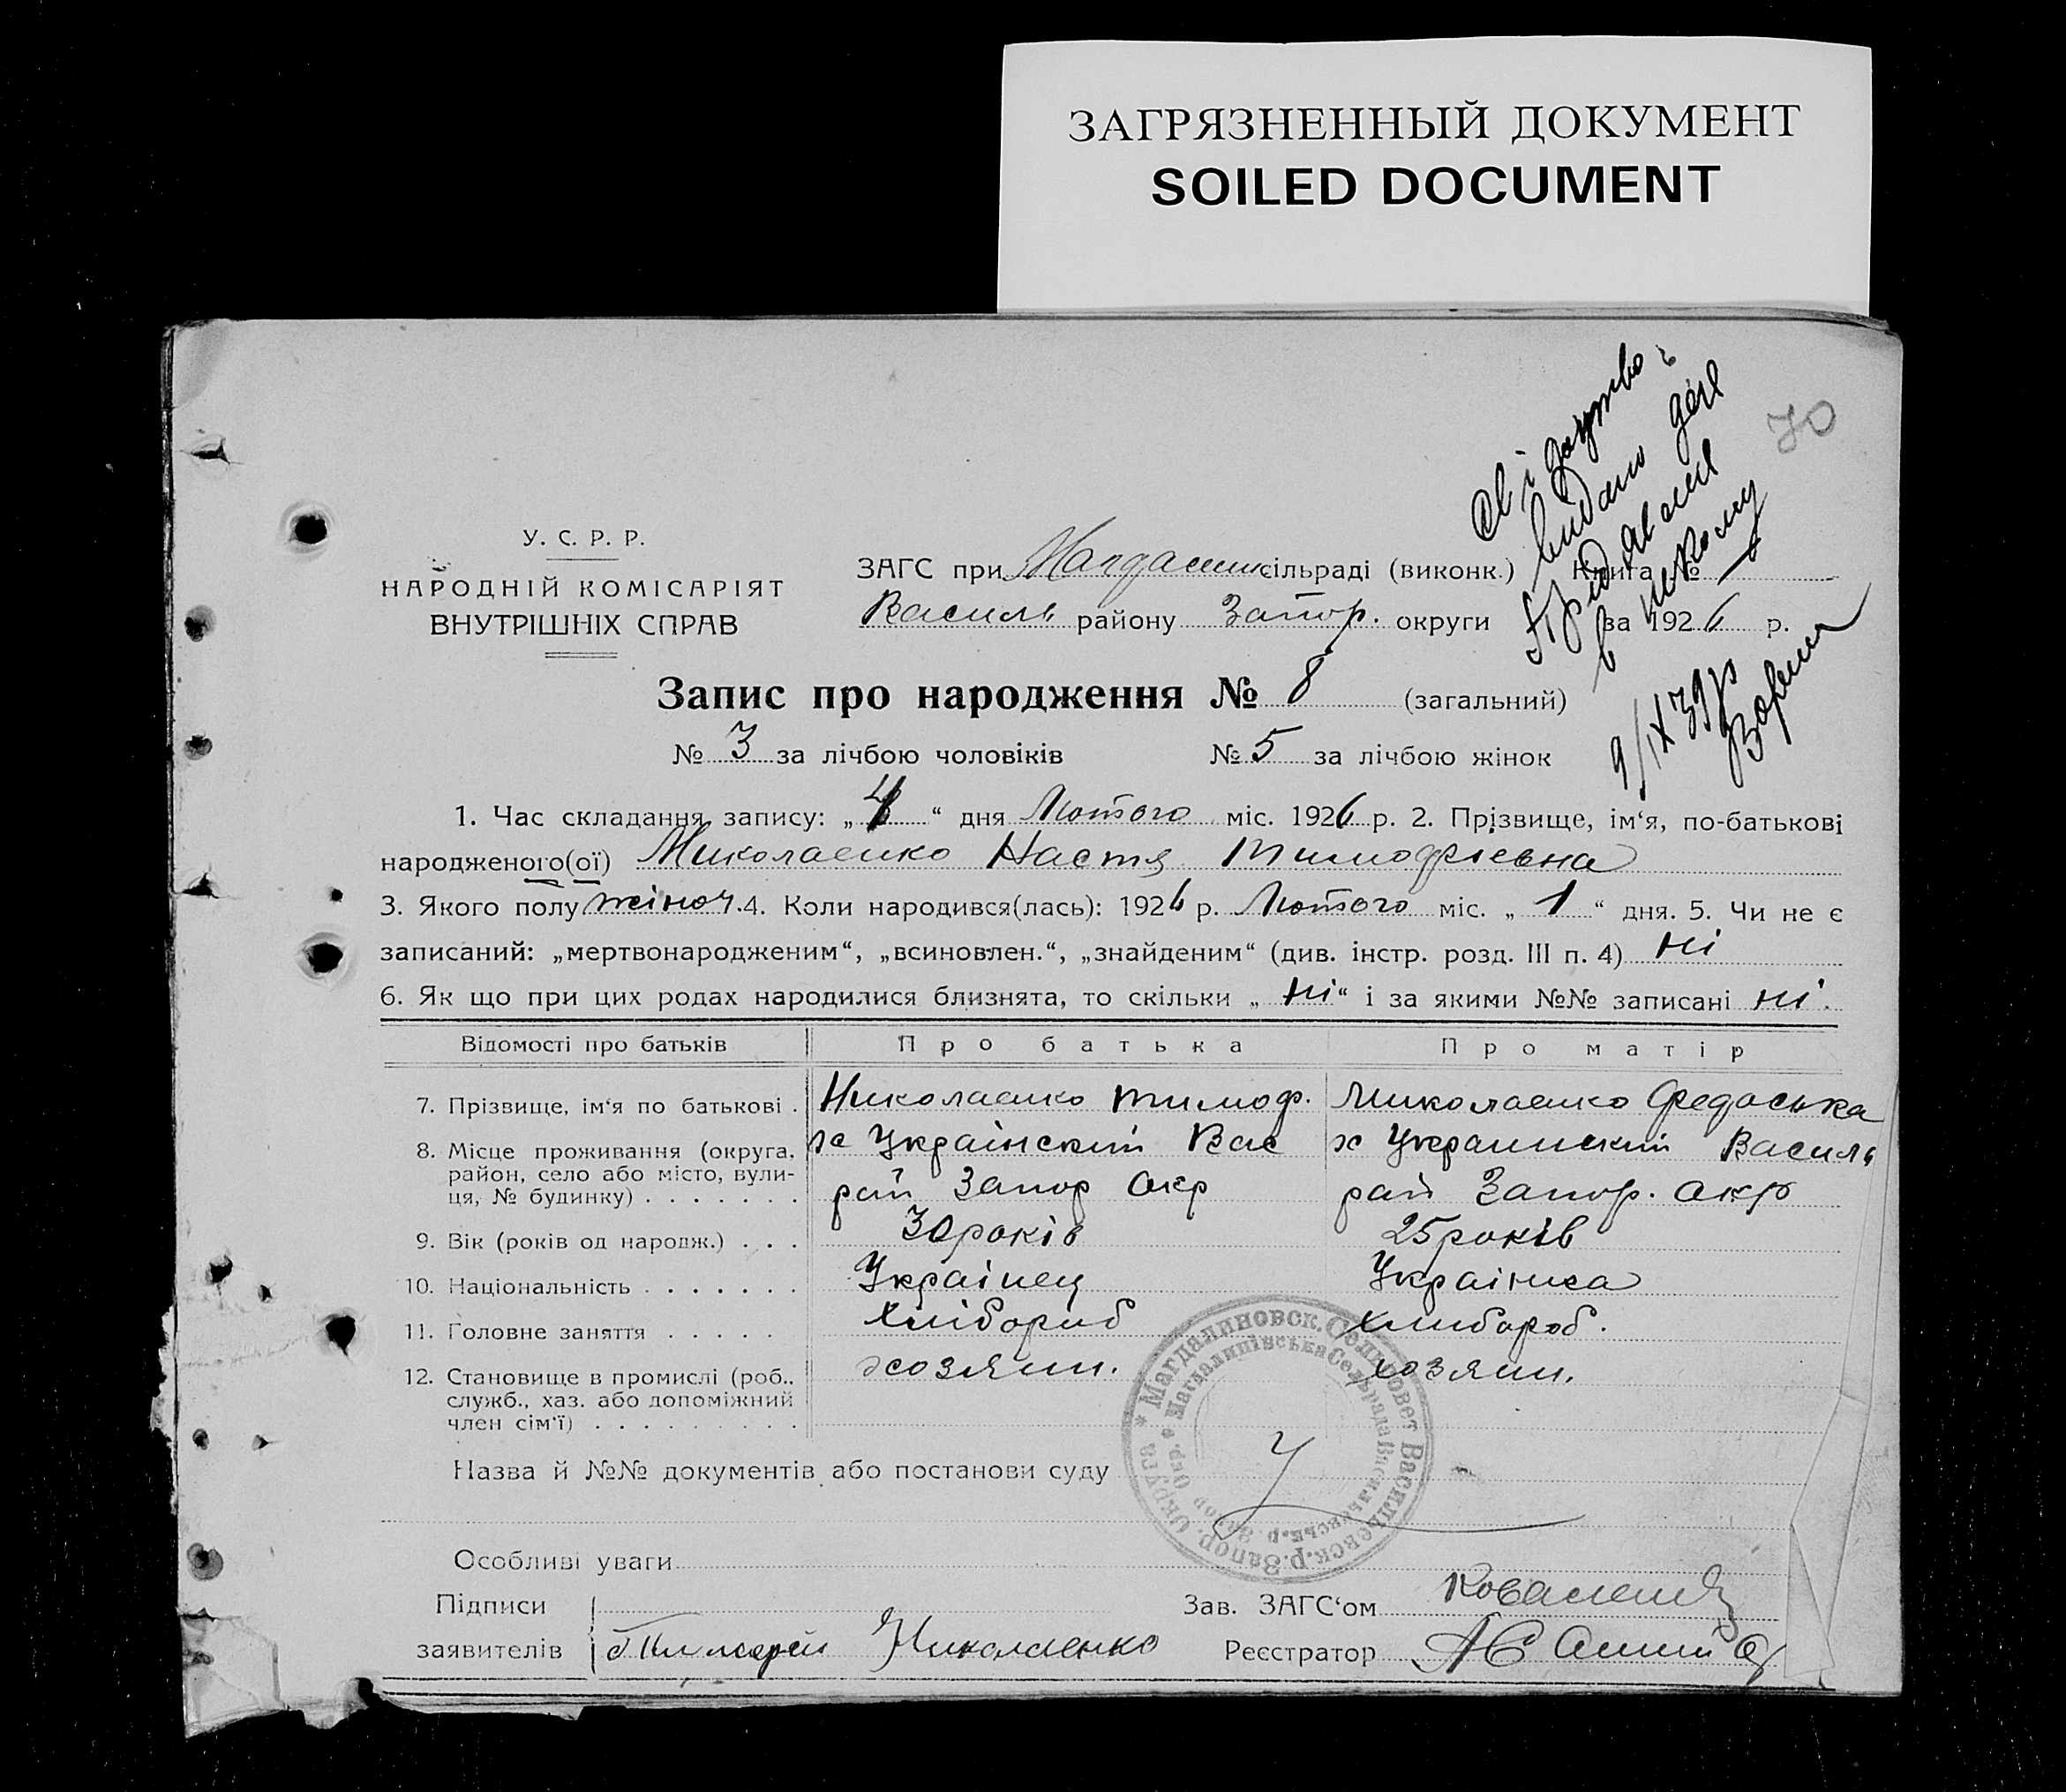 ЗАГРЯЗНЕННЫЙ ДОКУМЕНТ
SOILED DOCUMENT
70
Свідоцтво
видано для
в школу
9/IX 39 р
У. С. Р. Р.
НАРОДНІЙ КОМІСАРІЯТ
ВНУТРІШНІХ СПРАВ
ЗАГС при Магдалин сільраді (виконк.) Книга №
Василь району Запор. округи за 1926 р.
Запис про народження № 8 (загальний)
№ 3 за лічбою чоловіків № 5 за лічбою жінок
1. Час складання запису: „4“ дня Лютого міс. 1926 р. 2. Прізвище, ім‘я, по-батькові
народженого(ої) Миколаенко Настя Тимофіевна
3. Якого полу жіноч. 4. Коли народився(лась): 1926 р. Лютого міс. „1“ дня. 5. Чи не є
записаний: „мертвонародженим“, „всиновлен.“, „знайденим“ (див. інстр. розд. III п. 4) ні
6. Як що при цих родах народилися близнята, то скільки „ні“ і за якими №№ записані ні.
Відомості про батьків Про батька Про матір
7. Прізвище, ім‘я по батькові . Николаенко Тимоф. Миколаенко Федоська
8. Місце проживання (округа, район, село або місто, вулиця, № будинку) . . . . . . . х Український Вас рай Запор Окр х Украинский Василь рай Запор. Окр
9. Вік (років од народж.) . . . 30 років 25 років
10. Національність . . . . . . . Українец Українка
11. Головне заняття . . . . . Хлібороб Хлибороб.
12. Становище в промислі (роб., служб., хаз. або допоміжний член сім‘ї) . . . . . . . . . хозяин. хозяин.
Назва й №№ документів або постанови суду
* Магдалиновск. Сельсовет Васильевск. р. Запор. Округа
* Магдалинівська Сельрада Васильевськ. р. Запор. Окр.
Особливі уваги
Підписи Зав. ЗАГС‘ом
заявителів Тимофей Николаенко Реєстратор